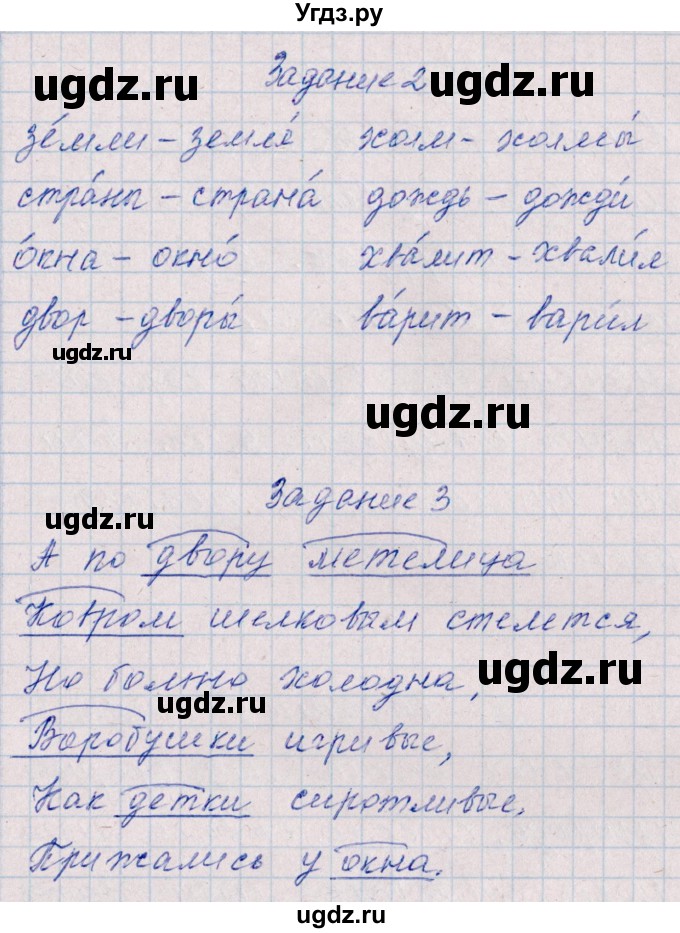 Угдз.ру
ugdz.ru ugdz.ru
Задание 2
зе́мли - земля́ холм - холмы́
стра́ны - страна́ дождь - дожди́
о́кна - окно́ хва́лит - хвали́л
двор - дворы́ ва́рит - вари́л
ugdz.ru
ugdz.ru
Задание 3
ugdz.ru
А по двору метелица
Ковром шелковым стелется,
Но больно холодна,
ugdz.ru ugdz.ru
Воробушки игривые,
Как детки сиротливые.
Прижались у окна.
ugdz.ru